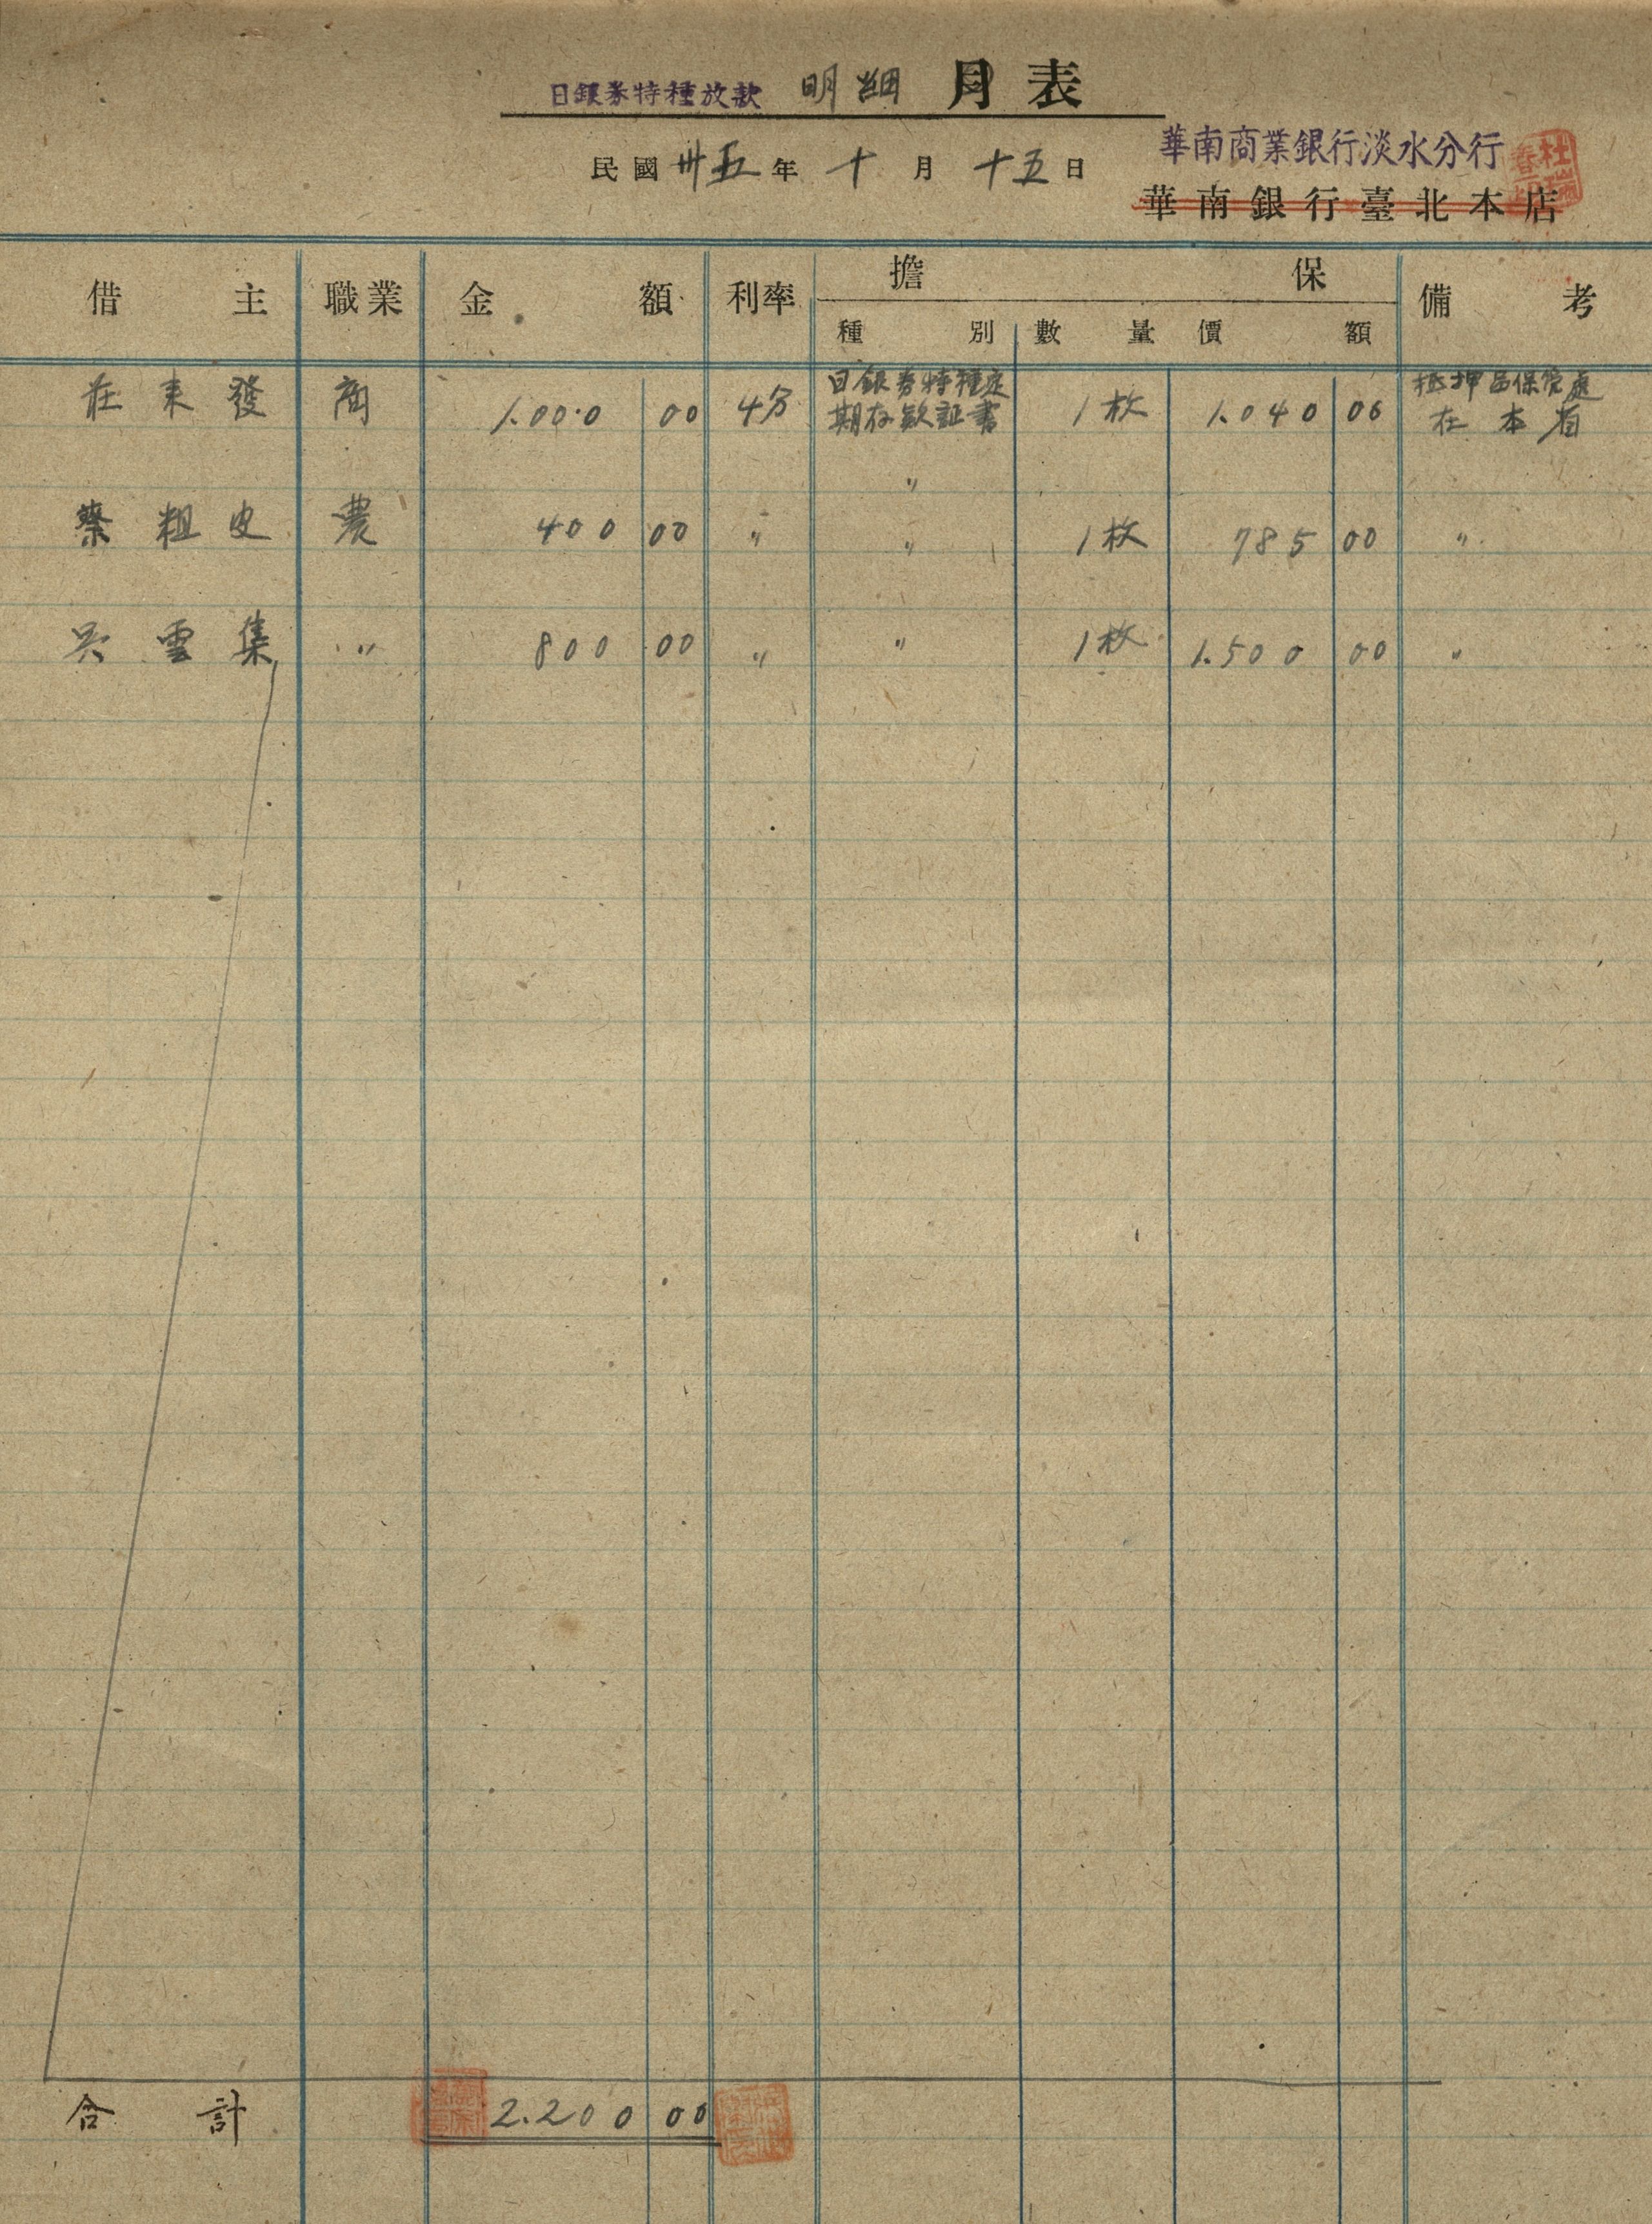 日銀券特種放款 明細 月表
民國 卅五 年 十 月 十五 日
華南商業銀行淡水分行
華南銀行臺北本店
借主 職業 金額 利率 擔保 備考
種別 數量 價額
日銀券特種定 抵押品保管處
来發 商 1.000 00 4分 期存款証書 1枚 1.040 00 在本省
〃
蔡粗皮 農 400 00 〃 〃 1枚 785 00 〃
吳雲集 〃 800 00 〃 〃 1枚 1.500 00 〃
合計 2.200 00